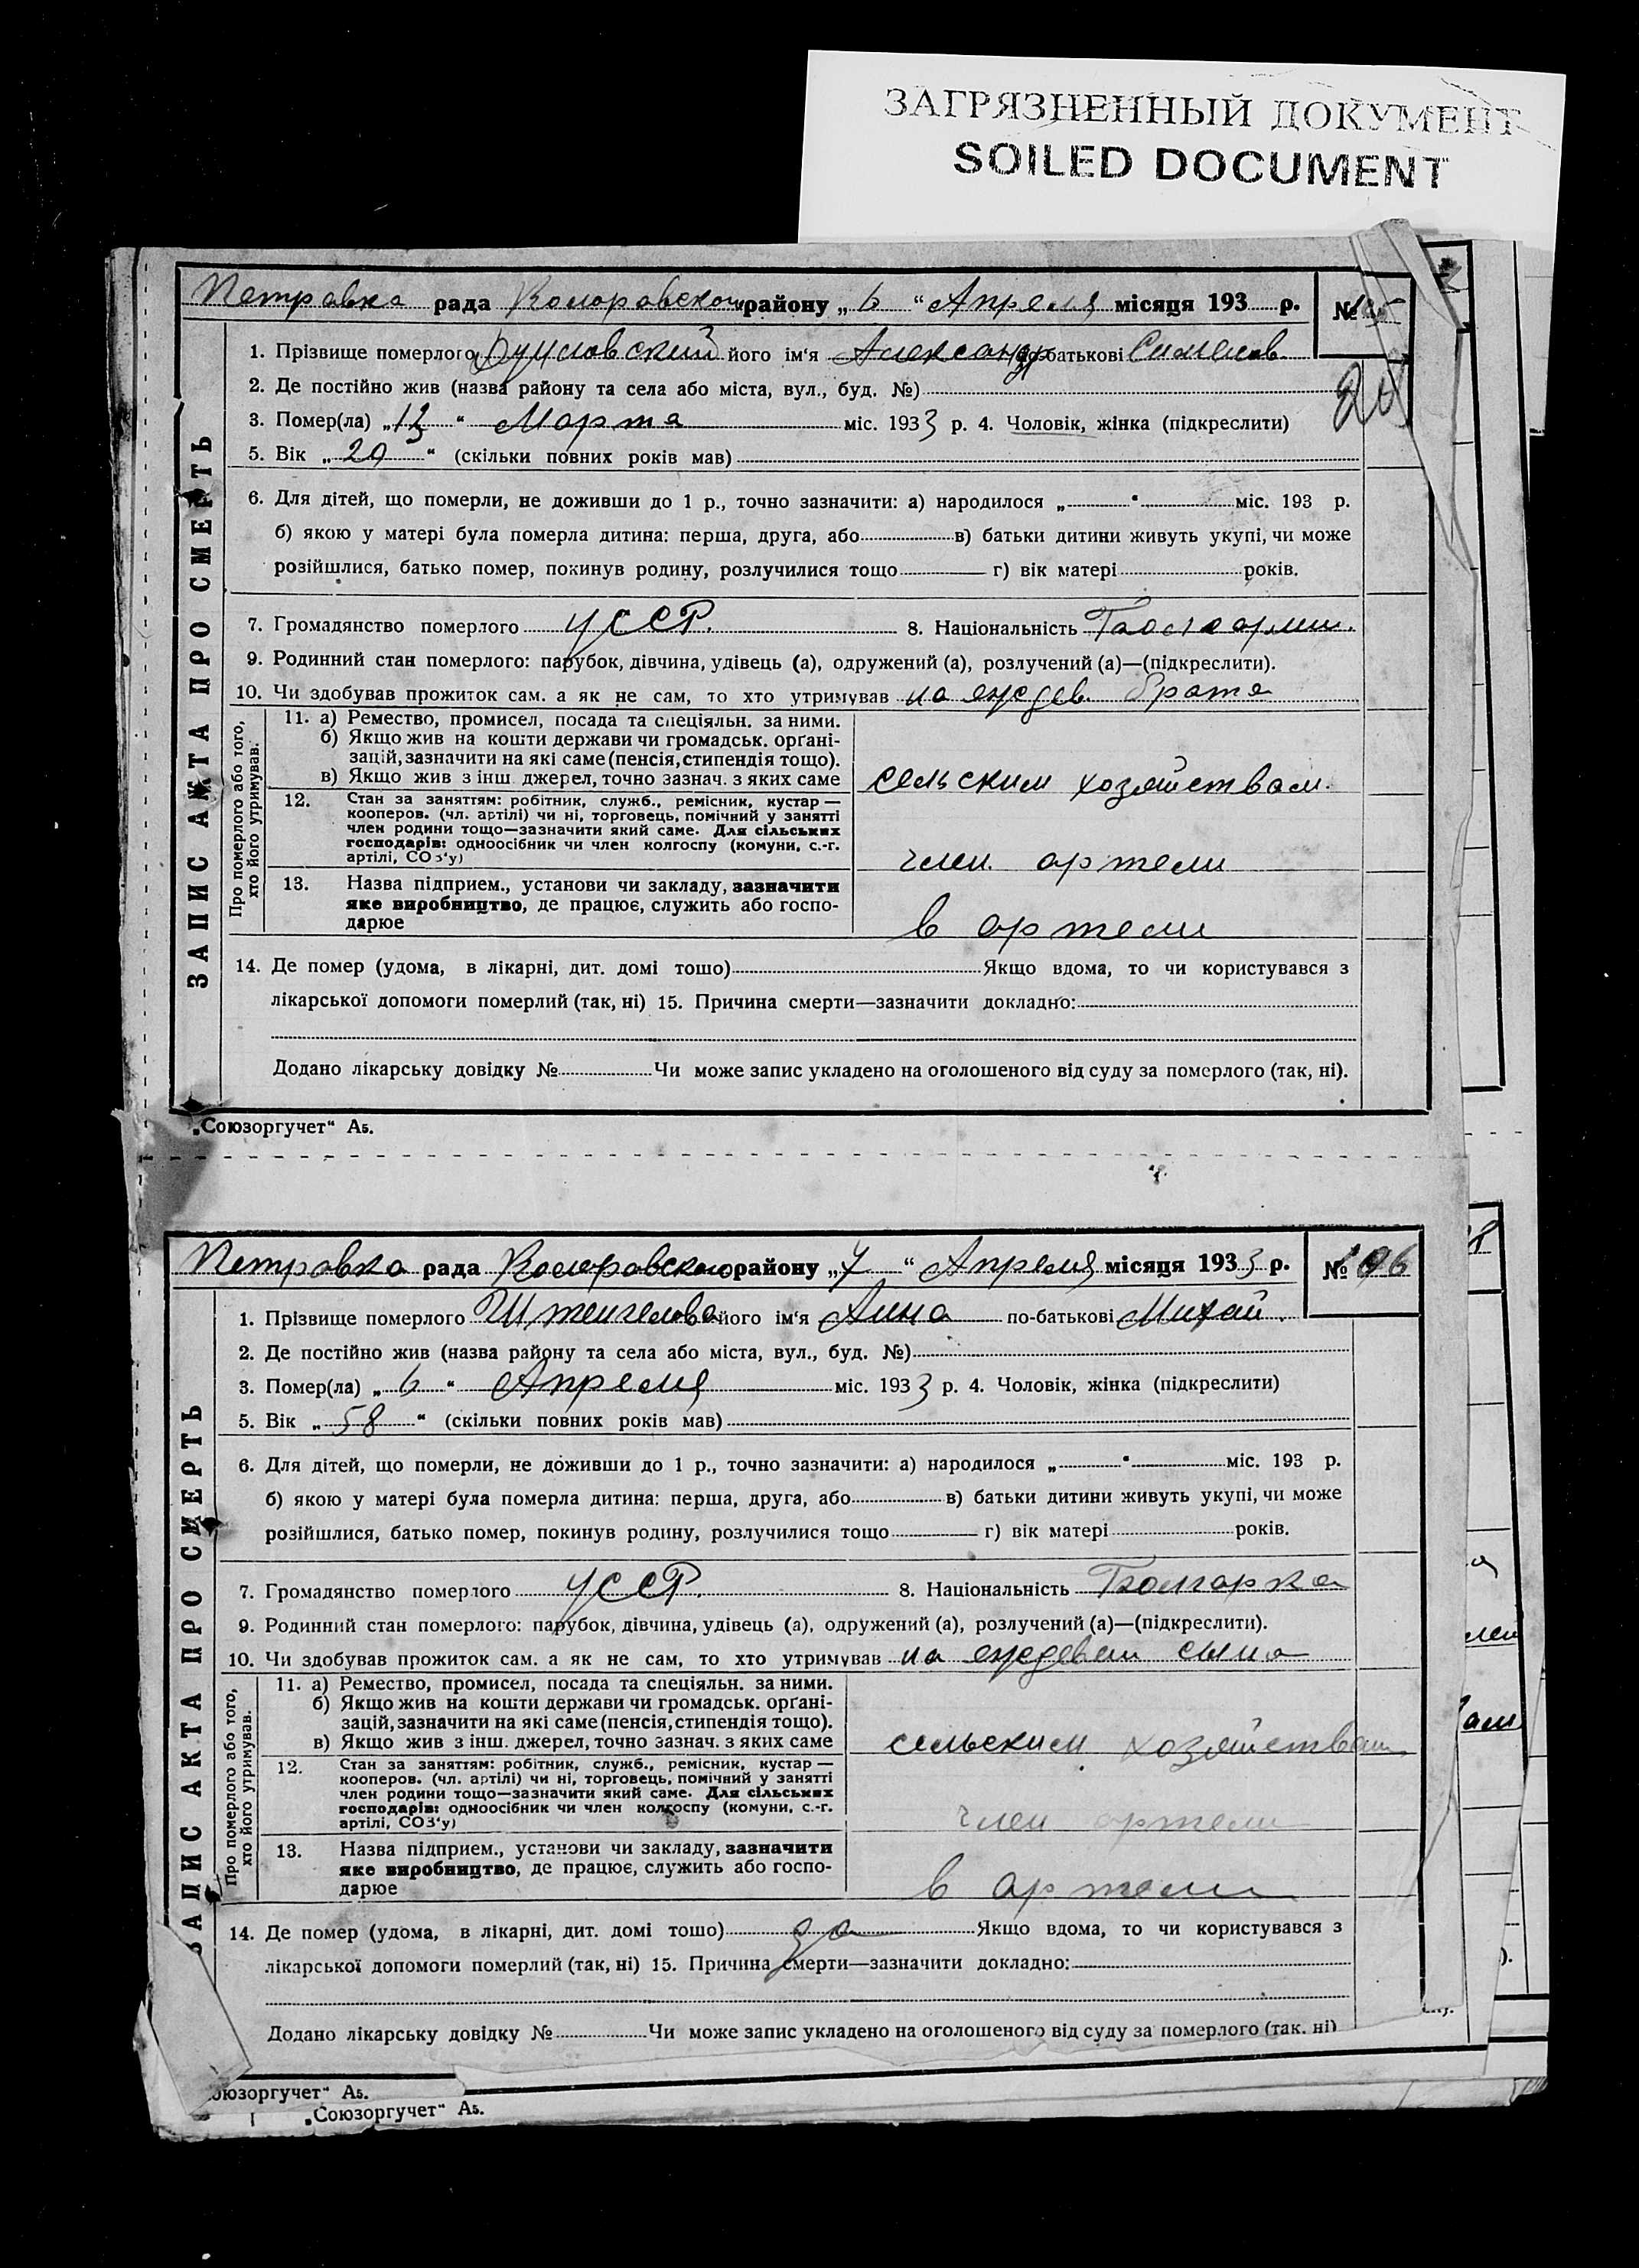 ЗАГРЯЗНЕННЫЙ ДОКУМЕНТ
SOILED DOCUMENT
Петровка рада Коларовского району „ 6 “ Апреля місяця 193 р. №
1. Прізвище померлого його ім‘я Александр по-батькові
2. Де постійно жив (назва району та села або міста, вул., буд. №)
3. Помер(ла) „ 13 “ Марта міс. 1933 р. 4. Чоловік, жінка (підкреслити)
5. Вік „ 29 “ (скільки повних років мав)
6. Для дітей, що померли, не доживши до 1 р., точно зазначити: а) народилося „ “ міс. 193 р.
б) якою у матері була померла дитина: перша, друга, або в) батьки дитини живуть укупі, чи може
розійшлися, батько помер, покинув родину, розлучилися тощо г) вік матері років.
7. Громадянство померлого УССР. 8. Національність
9. Родинний стан померлого: парубок, дівчина, удівець (а), одружений (а), розлучений (а)—(підкреслити).
10. Чи здобував прожиток сам. а як не сам, то хто утримував на иждев. брата
ЗАПИС АКТА ПРО СМЕРТЬ
Про померлого або того, хто його утримував.
11. а) Ремество, промисел, посада та спеціяльн. за ними.
б) Якщо жив на кошти держави чи громадськ. орґані-
зацій, зазначити на які саме (пенсія, стипендія тощо).
в) Якщо жив з інш. джерел, точно зазнач. з яких саме сельским хозяйствам.
12. Стан за заняттям: робітник, служб., ремісник, кустар —
кооперов. (чл. артілі) чи ні, торговець, помічний у занятті
член родини тощо—зазначити який саме. Для сільських
господарів: одноосібник чи член колгоспу (комуни, с.-г.
артілі, СОЗ‘у) член артели
13. Назва підприєм., установи чи закладу, зазначити
яке виробництво, де працює, служить або госпо-
дарює в артели
14. Де помер (удома, в лікарні, дит. домі тошо) Якщо вдома, то чи користувався з
лікарської допомоги померлий (так, ні) 15. Причина смерти—зазначити докладно:
Додано лікарську довідку № Чи може запис укладено на оголошеного від суду за померлого (так, ні).
„Союзоргучет“ А5.
Петровка рада Коларовского району „ 7 “ Апреля місяця 1933 р. № 96
1. Прізвище померлого його ім‘я Анна по-батькові Михай.
2. Де постійно жив (назва району та села або міста, вул., буд. №)
3. Помер(ла) „ 6 “ Апреля міс. 1933 р. 4. Чоловік, жінка (підкреслити)
5. Вік „ 58 “ (скільки повних років мав)
6. Для дітей, що померли, не доживши до 1 р., точно зазначити: а) народилося „ “ міс. 193 р.
б) якою у матері була померла дитина: перша, друга, або в) батьки дитини живуть укупі, чи може
розійшлися, батько помер, покинув родину, розлучилися тощо г) вік матері років.
7. Громадянство померлого УССР. 8. Національність Болгарка
9. Родинний стан померлого: парубок, дівчина, удівець (а), одружений (а), розлучений (а)—(підкреслити).
10. Чи здобував прожиток сам. а як не сам, то хто утримував на сына
ЗАПИС АКТА ПРО СМЕРТЬ
Про померлого або того, хто його утримував.
11. а) Ремество, промисел, посада та спеціяльн. за ними.
б) Якщо жив на кошти держави чи громадськ. орґані-
зацій, зазначити на які саме (пенсія, стипендія тощо).
в) Якщо жив з інш. джерел, точно зазнач. з яких саме сельским хозяйствам
12. Стан за заняттям: робітник, служб., ремісник, кустар —
кооперов. (чл. артілі) чи ні, торговець, помічний у занятті
член родини тощо—зазначити який саме. Для сільських
господарів: одноосібник чи член колгоспу (комуни, с.-г.
артілі, СОЗ‘у) член артели
13. Назва підприєм., установи чи закладу, зазначити
яке виробництво, де працює, служить або госпо-
дарює в артели
14. Де помер (удома, в лікарні, дит. домі тошо) да Якщо вдома, то чи користувався з
лікарської допомоги померлий (так, ні) 15. Причина смерти—зазначити докладно:
Додано лікарську довідку № Чи може запис укладено на оголошеного від суду за померлого (так. ні)
оюзоргучет“ А5.
„Союзоргучет“ А5.